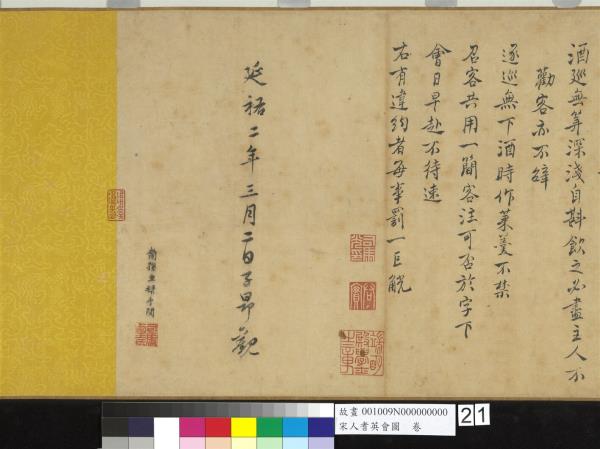 酒廵無筭深淺自斟飲之必盡主人不
勸客亦不辭
逐廵無下酒時作菜羹不禁
召客共用一簡客注可否於字下
會日早赴不待速
右有違約者每事罰一巨觥
延祐二年三月二日子昂觀
故畫 001009N000000000
宋人耆英會圖 卷
21